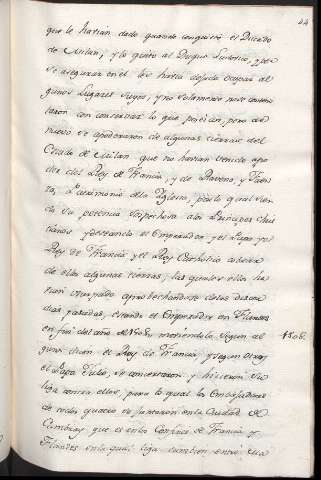 44
que le havian dado quando conquistó el Ducado
de Milan, y lo quitó al Duque Ludovico, y por
se asegurar en el les havia dejado ocupar al
gunos Lugares suyos, y no solamente no se conten
taron con conservar lo que poseían, pero de
nuevo se apoderaron de algunas tierras del
Estado de Milan que no havian venido apo
der del Rey de Francia, y de Ravena, y Faen
za, Patrimonio de la Iglesia, por lo qual
la su potencia sospechosa a los Principes Chris
tianos y el Emperador, y el Papa, y el
Rey de Francia y el Rey Catholico
de ellos algunas tierras, las quales ellos ha
vian ocupado aprobechandose de las discor
dias pasadas, estando el Emperador en Flandes
en fin del año de 1508, moviendolo segun al
gunos dicen el Rey de Francia, y segun otros
el Papa Julio, se concertaron y hicieron
liga contra ellos, para lo qual los Embajadores
de todos quatro se juntaron en la Ciudad de
Cambray que es en los Confines de Francia y
Flandes en la qual liga tambien entró
1508.